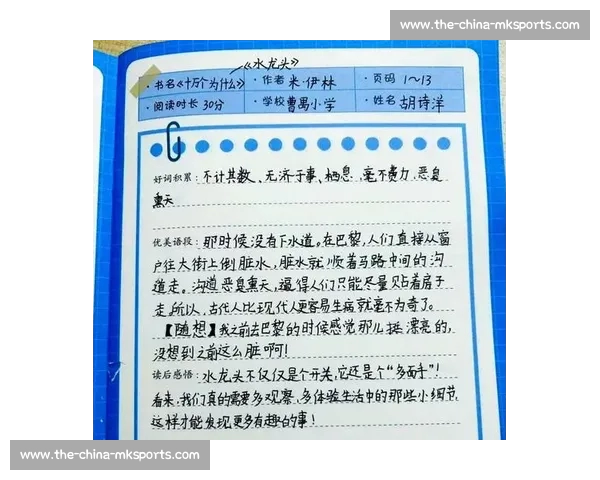 www.the-china-mksports.com
《水龙头》
·书名《十万个为什么》 ·作者 米·伊林 ·页码 1～13
·阅读时长 30分 ·学校 曹禺小学 ·姓名 胡诗洋
好词积累：不计其数、无济于事、栖息、毫不费力、恶臭
熏天
优美语段：那时候没有下水道。在巴黎，人们直接从窗
户往大街上倒脏水，脏水就顺着马路中间的沟
道走。沟道恶臭熏天，逼得人们只能尽量贴着房子
走，所以，古代人比现代人更容易生病就毫不为奇了。
【随想】我之前去巴黎的时候感觉那儿挺漂亮的，
没想到之前这么脏啊！
读后感悟：水龙头不仅仅是个开关，它还是个“多面手”！
看来，我们真的需要多观察，多体验生活中的那些小细节，
这样才能发现更多有趣的事！
www.the-china-mksports.com